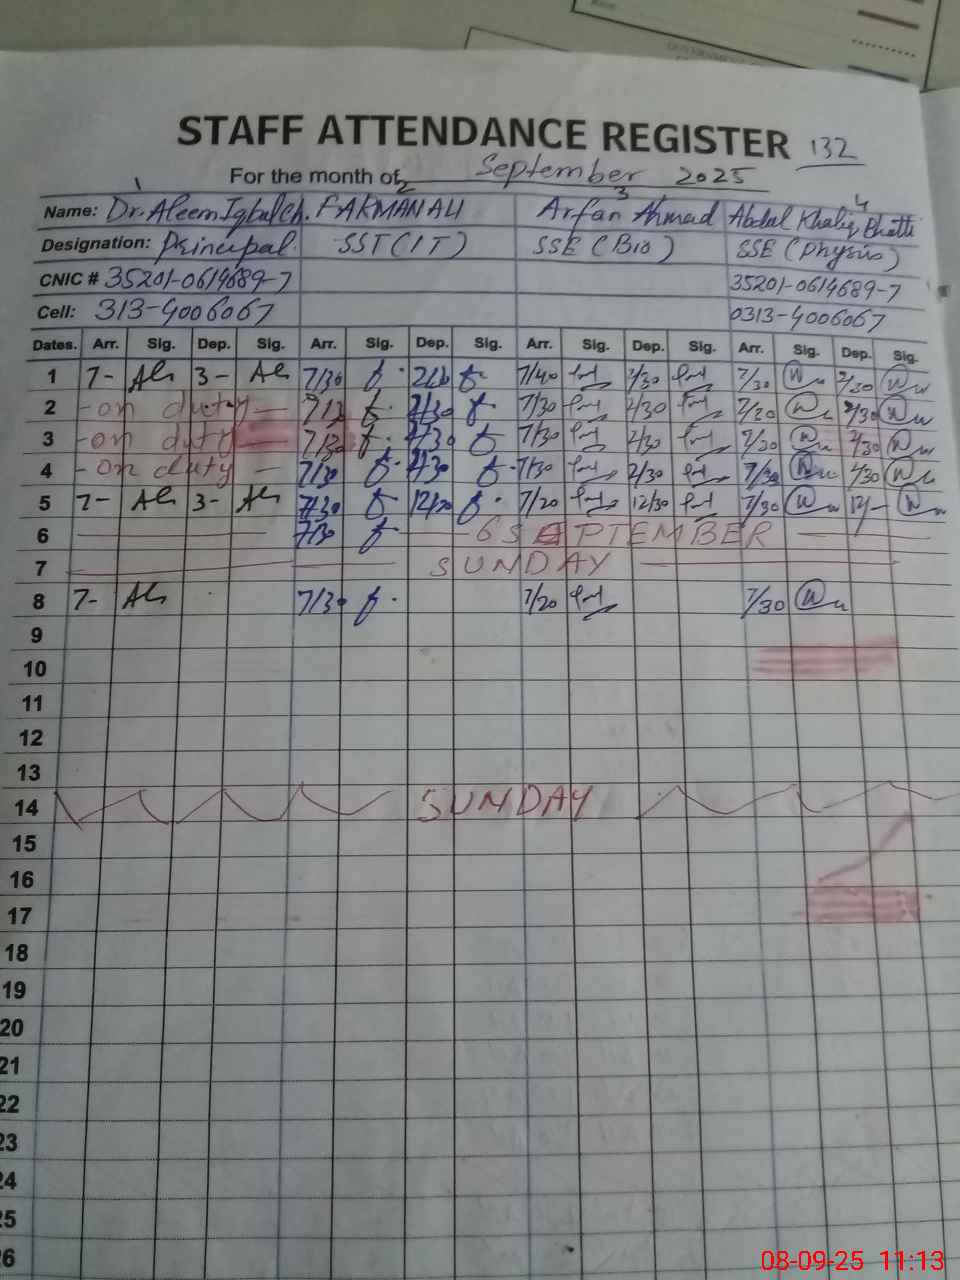 STAFF ATTENDANCE REGISTER 132
For the month of September 2025
1 2 3 4
Name: Dr. Aleem Iqbal Ch. FARMAN ALI Arfan Ahmad Abdal Khaliq Bhatti
Designation: Principal. SST (IT) SSE (Bio) SSE (Physis)
CNIC # 35201-0619689-7 35201-0619689-7
Cell: 313-4006067 0313-4006067
Dates. Arr. Sig. Dep. Sig. Arr. Sig. Dep. Sig. Arr. Sig. Dep. Sig. Arr. Sig. Dep. Sig.
1 7- 3- 7/30 7/40 2/30 7/30 2/30
2 - on duty - 7/30 2/30 7/30 2/30 7/20 2/30
3 - on duty - 7/30 2/30 7/30 2/30 7/30 2/30
4 - on duty - 7/30 2/30 7/30 2/30 7/30 2/30
5 7- 3- 7/30 12/20 7/20 12/30 7/30 12/-
6 7/30 6 SEPTEMBER
7 SUNDAY
8 7- 7/30 7/20 7/30
9
10
11
12
13
14 SUNDAY
15
16
17
18
19
20
21
22
23
24
25
26
08-09-25 11:13